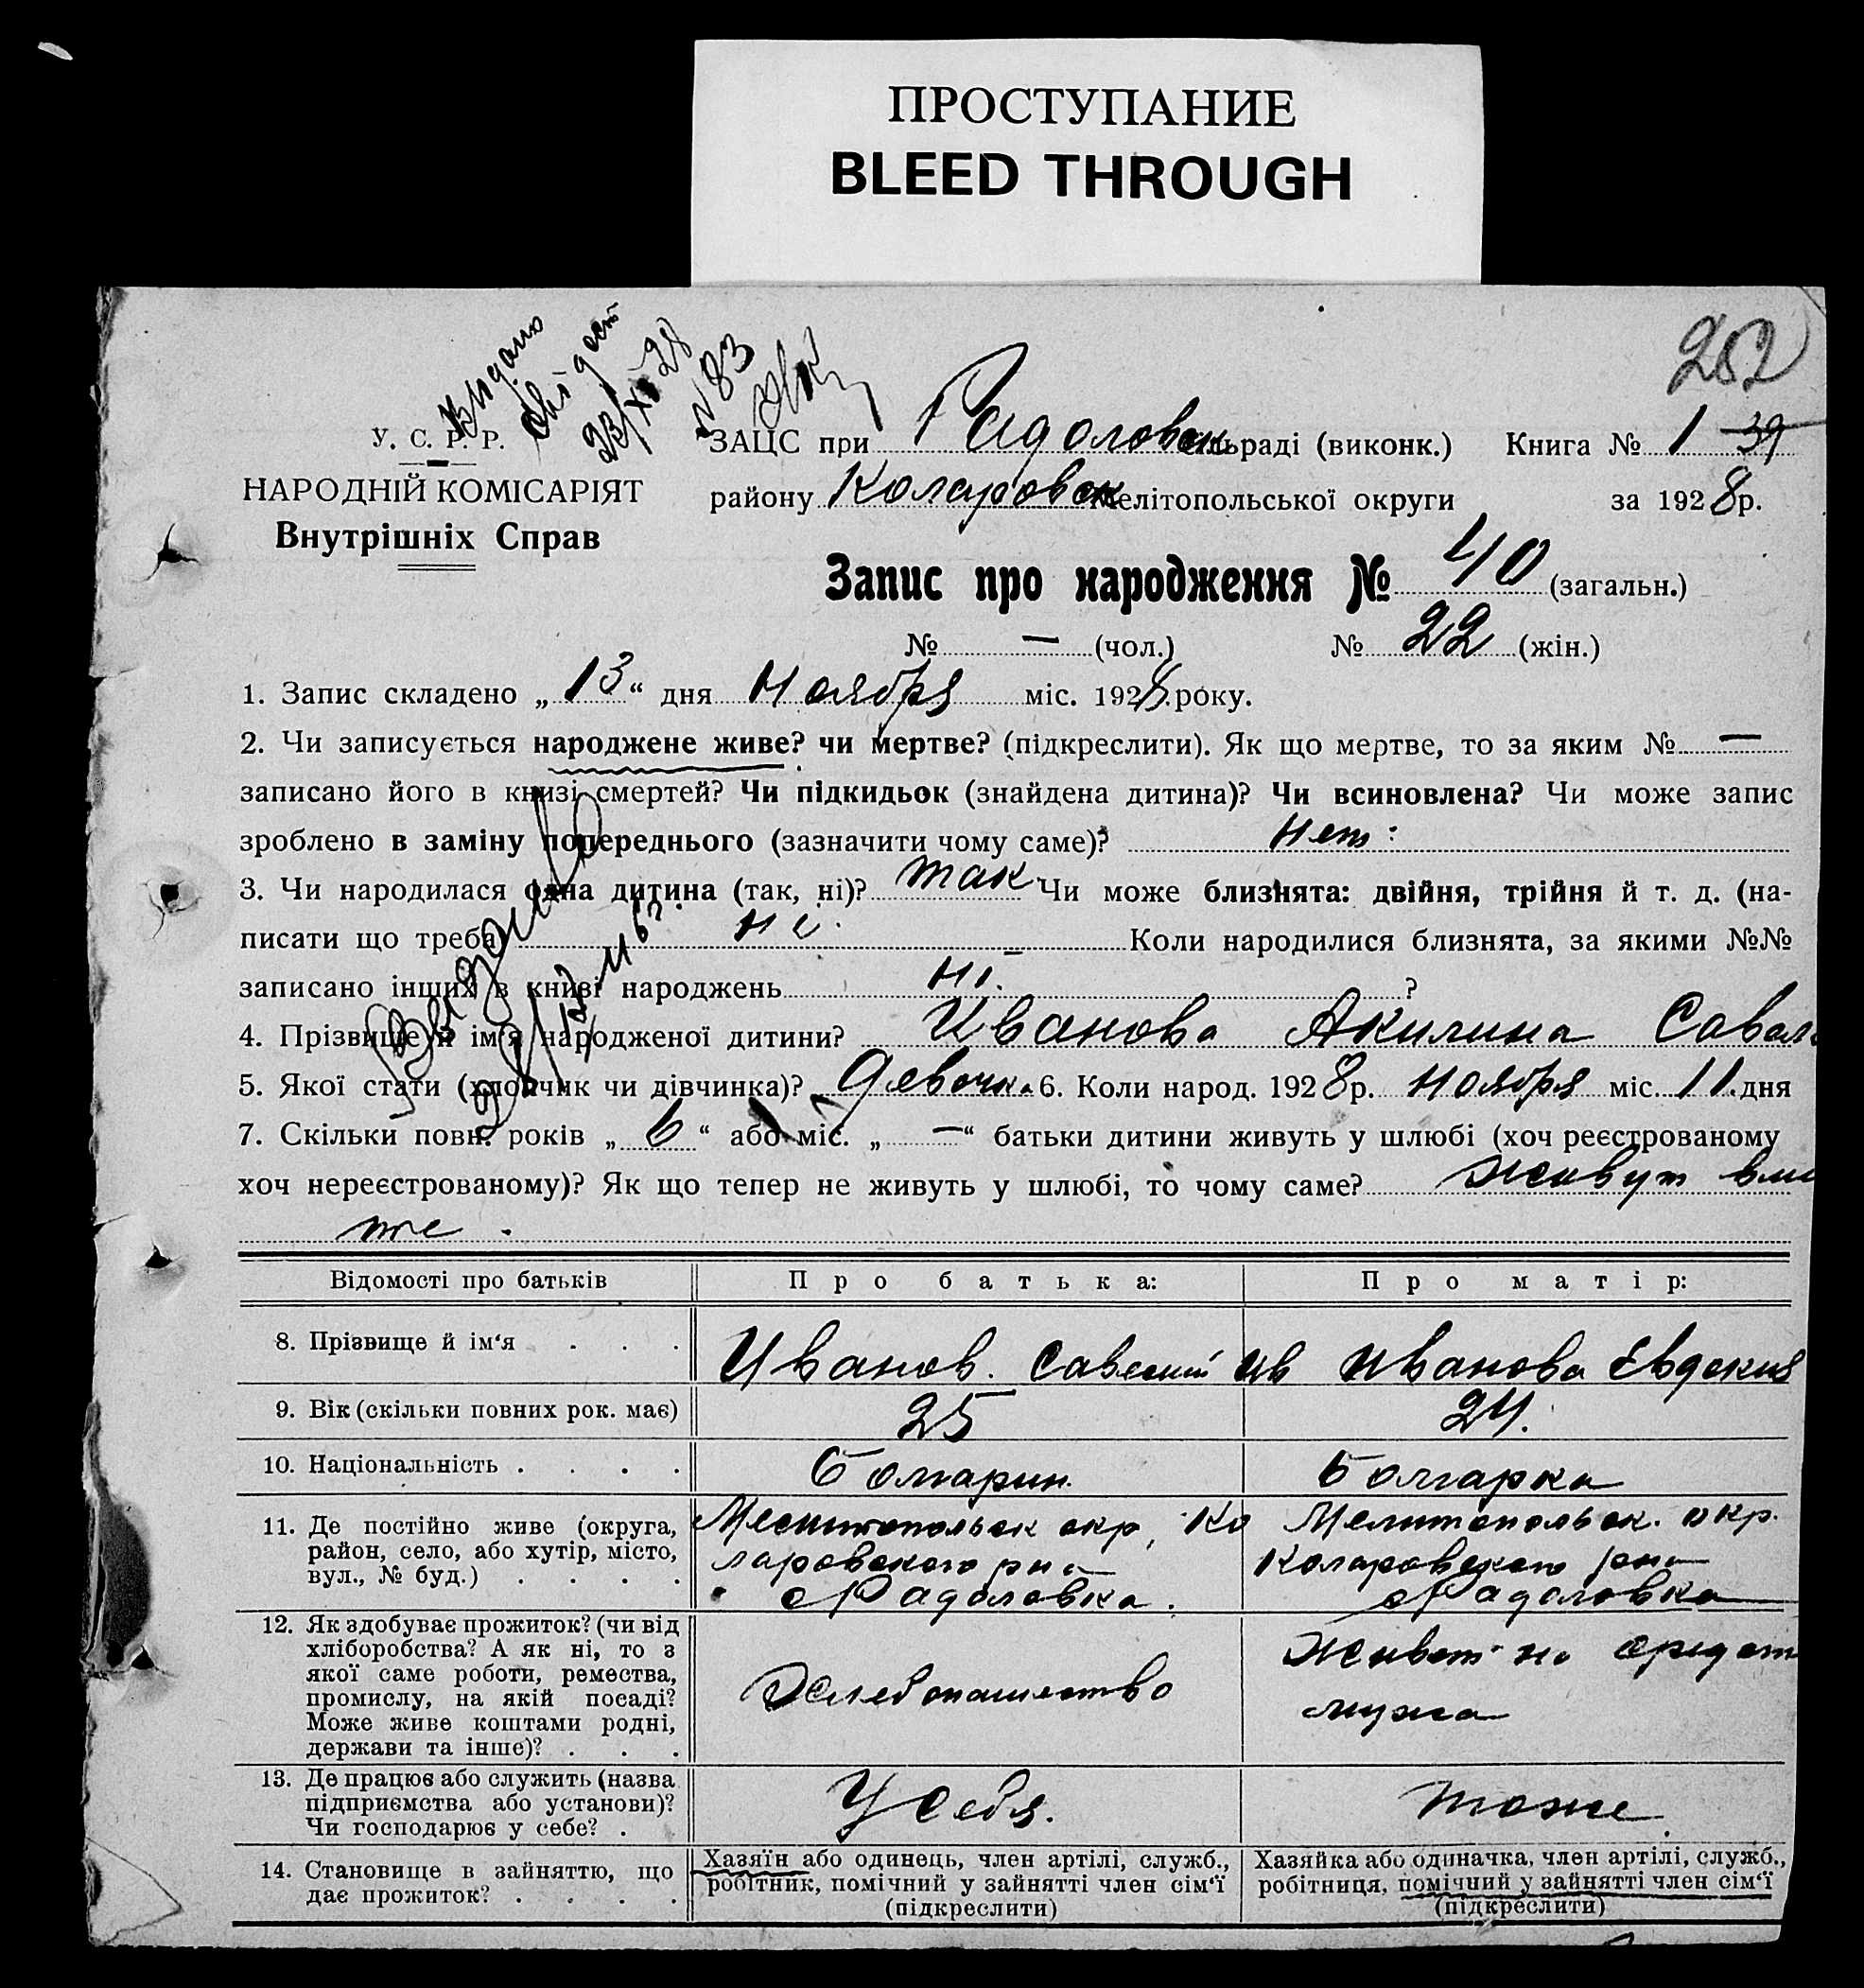 ПРОСТУПАНИЕ
BLEED THROUGH
252
Видано
свідест
23/XI 28
№ 83
У. С. Р. Р.
НАРОДНІЙ КОМІСАРІЯТ
Внутрішніх Справ
ЗАЦС при Радоловск сільраді (виконк.) Книга № 1 39
району Коларовск Мелітопольської округи за 1928 р.
Запис про народження № 40 (загальн.)
№ — (чол.) № 22 (жін.)
1. Запис складено „ 13 “ дня Ноября міс. 1928 року.
2. Чи записується народжене живе? чи мертве? (підкреслити). Як що мертве, то за яким № —
записано його в книзі смертей? Чи підкидьок (знайдена дитина)? Чи всиновлена? Чи може запис
зроблено в заміну попереднього (зазначити чому саме)? Нет
3. Чи народилася одна дитина (так, ні)? так Чи може близнята: двійня, трійня й т. д. (на-
писати що треба) ні. Коли народилися близнята, за якими №№
записано інших в книзі народжень ні. ?
4. Прізвище й ім'я народженої дитини? Иванова Акилина Савел
5. Якої стати (хлопчик чи дівчинка)? Девочка 6. Коли народ. 1928 р. Ноября міс. 11. дня
7. Скільки повн. років „ 6 “ або міс. „ — “ батьки дитини живуть у шлюбі (хоч реєстрованому
хоч нереєстрованому)? Як що тепер не живуть у шлюбі, то чому саме? Живут вмі
сте.
Відомості про батьків Про батька: Про матір:
8. Прізвище й ім'я . . . Иванов. Савелий Ив Иванова Евдокия
9. Вік (скільки повних рок. має) 25 24.
10. Національність . . . . болгарин. болгарка
11. Де постійно живе (округа,
район, село, або хутір, місто,
вул., № буд.) . . . .
Мелитопольск окр, Ко
ларовского рна
с Радоловка.
Мелитопольск. окр.
Коларовского рна
с Радоловка
12. Як здобуває прожиток? (чи від
хліборобства? А як ні, то з
якої саме роботи, ремества,
промислу, на якій посаді?
Може живе коштами родні,
держави та інше)? . . .
Хлебопашество
Живет на средст
мужа
13. Де працює або служить (назва
підприємства або установи)?
Чи господарює у себе? .
У себя.
тоже
14. Становище в зайняттю, що
дає прожиток? . . . .
Хазяїн або одинець, член артілі, служб.,
робітник, помічний у зайнятті член сім'ї
(підкреслити)
Хазяйка або одиначка, член артілі, служб.,
робітниця, помічний у зайнятті член сім'ї
(підкреслити)